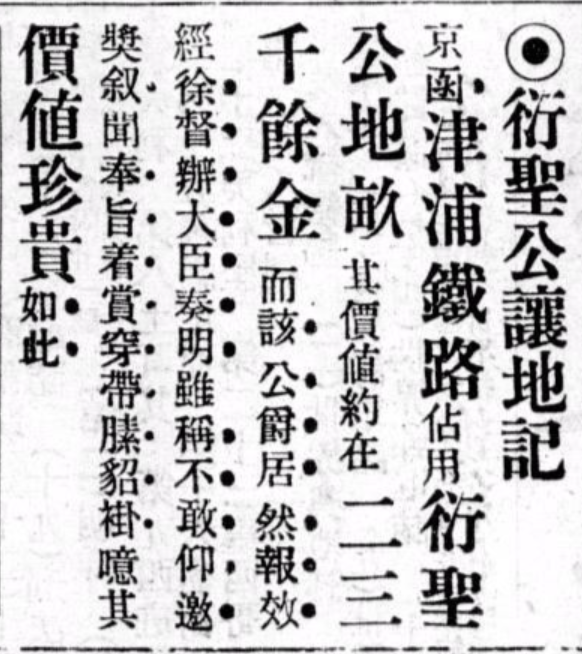 ◉衍聖公讓地記
京函津浦鐵路佔用衍聖
公地畝其價值約在二三
千餘金而該公爵居然報效
經徐督辦大臣奏明雖稱不敢仰邀
奬叙聞奉旨着賞穿帶膆貂褂噫其
價値珍貴如此